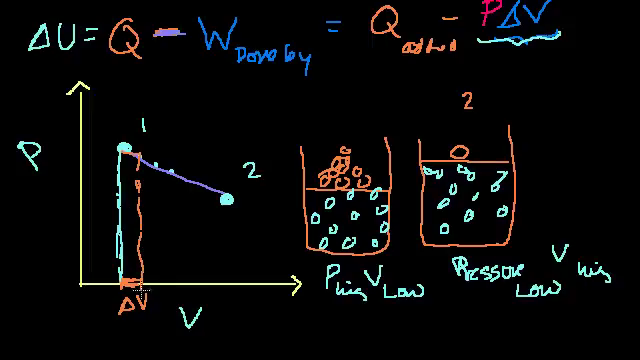 ΔU = Q - W Done by = Q added - PΔV
2
1
P
2
ΔV
V
P high V Low
Pressure Low V high